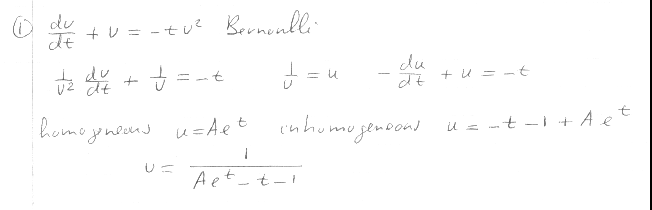 ① dv/dt + v = -tv² Bernoulli.
1/v² dv/dt + 1/v = -t    1/v = u    - du/dt + u = -t
homogeneous u=Ae^t inhomogeneous u = -t-1 + Ae^t
v = 1/(Ae^t - t - 1)